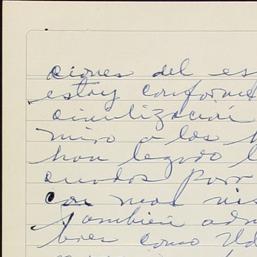 ciones del es
estoy conforme
civilización
miro a los h
han legado l
cundos por
con mas vis
tambien adm
bres como Ud